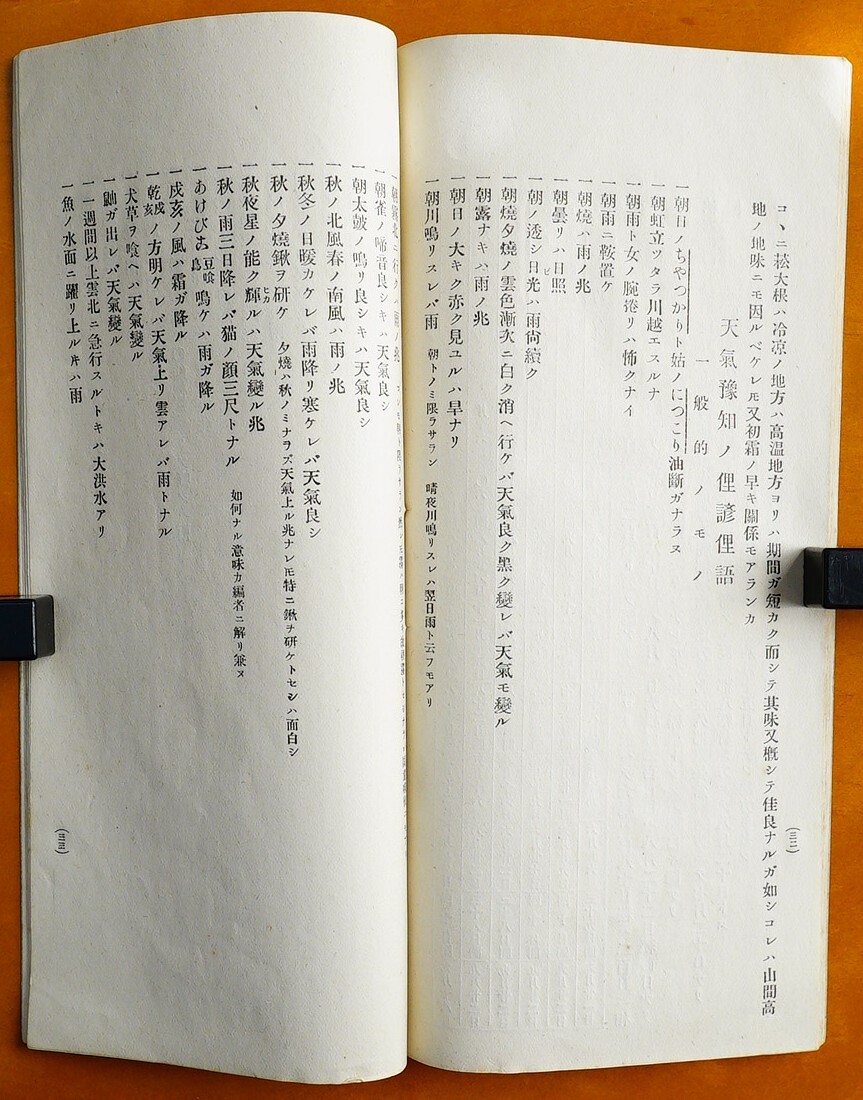 コヽニ菘大根ハ冷凉ノ地方ハ高温地方ヨリハ期間ガ短カク而シテ其味又概シテ佳良ナルガ如シコレハ山間高
地ノ地味ニモ因ルベケレ𪜈又初霜ノ早キ關係モアランカ
天氣豫知ノ俚諺俚語
一般的ノモノ
一朝日ノちやつかりト姑ノにつこり油斷ガナラヌ
一朝虹立ツタラ川越エスルナ
一朝雨ト女ノ腕捲リハ怖クナイ
一朝雨ニ鞍置ケ
一朝燒ハ雨ノ兆
一朝曇リハ日照
一朝ノ透シ日光ハ雨尙續ク
一朝燒夕燒ノ雲色漸次ニ白ク消ヘ行ケバ天氣良ク黑ク變レバ天氣モ變ル
一朝露ナキハ雨ノ兆
一朝日ノ大キク赤ク見ユルハ旱ナリ
一朝川鳴リスレバ雨 朝トノミ限ラサラン 晴夜川鳴リスレハ翌日雨ト云フモアリ
(三二)
一朝霧北ニ行クハ雨ノ兆
一朝雀ノ啼音良シキハ天氣良シ
一朝太鼓ノ鳴リ良シキハ天氣良シ
一秋ノ北風春ノ南風ハ雨ノ兆
一秋冬ノ日暖カケレバ雨降リ寒ケレバ天氣良シ
一秋ノ夕燒鍬ヲ研ケ 夕燒ハ秋ノミナラズ天氣上ル兆ナレ𪜈特ニ鍬ヲ研ケトセシハ面白シ
一秋夜星ノ能ク輝ルハ天氣變ル兆
一秋ノ雨三日降レバ猫ノ顏三尺トナル 如何ナル意味カ編者ニ解リ兼ヌ
一あけび 豆喰鳥 鳴ケハ雨ガ降ル
一戌亥ノ風ハ霜ガ降ル
一乾戌亥ノ方明ケレバ天氣上リ雲アレバ雨トナル
一犬草ヲ喰ヘハ天氣變ル
一鼬ガ出レバ天氣變ル
一一週間以上雲北ニ急行スルトキハ大洪水アリ
一魚ノ水面ニ躍リ上ル𪜈ハ雨
(三三)